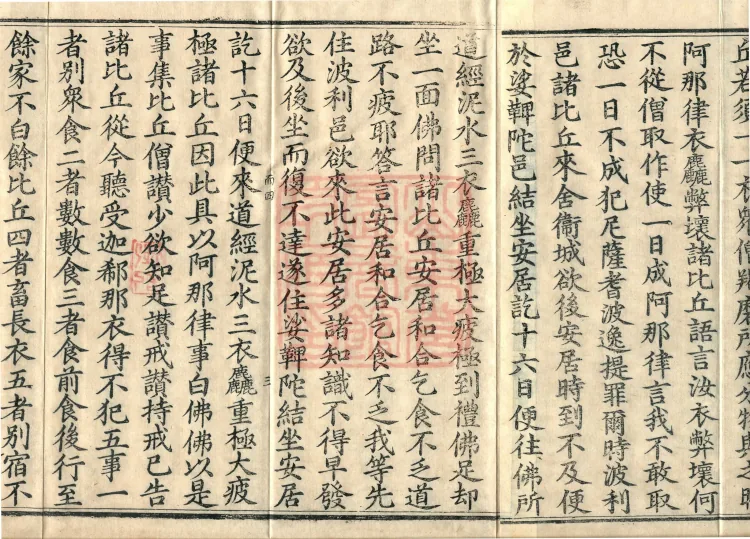 阿那律衣麤弊壞諸比丘語言汝衣弊壞何
不從僧取作使一日成阿那律言我不敢取
恐一日不成犯尼薩耆波逸提罪爾時波利
邑諸比丘來舍衞城欲後安居時到不及便
於娑鞞陀邑結坐安居訖十六日便往佛所
道經泥水三衣麤重極大疲極到禮佛足却
坐一面佛問諸比丘安居和合乞食不乏道
路不疲耶答言安居和合乞食不乏我等先
住波利邑欲來此安居多諸知識不得早發
欲及後坐而復不達遂住娑鞞陀結坐安居
訖十六日便來道經泥水三衣麤重極大疲
極諸比丘因此具以阿那律事白佛佛以是
事集比丘僧讃少欲知足讃戒讃持戒已告
諸比丘從今聽受迦郗那衣得不犯五事一
者別衆食二者數數食三者食前食後行至
餘家不白餘比丘四者畜長衣五者別宿不